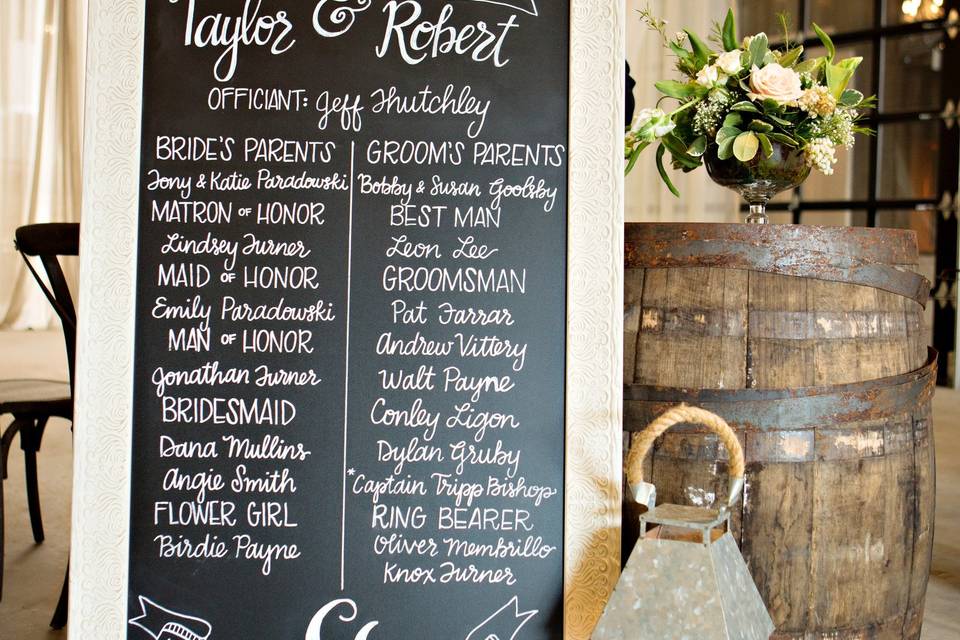 Taylor & Robert
OFFICIANT: Jeff Thutchley
BRIDE'S PARENTS
Tony & Katie Paradowski
MATRON OF HONOR
Lindsey Turner
MAID OF HONOR
Emily Paradowski
MAN OF HONOR
Jonathan Turner
BRIDESMAID
Dana Mullins
Angie Smith
FLOWER GIRL
Birdie Payne
GROOM'S PARENTS
Bobby & Susan Goolsby
BEST MAN
Leon Lee
GROOMSMAN
Pat Farrar
Andrew Vittery
Walt Payne
Conley Ligon
Dylan Gruby
*Captain Tripp Bishop
RING BEARER
Oliver Membrillo
Knox Turner